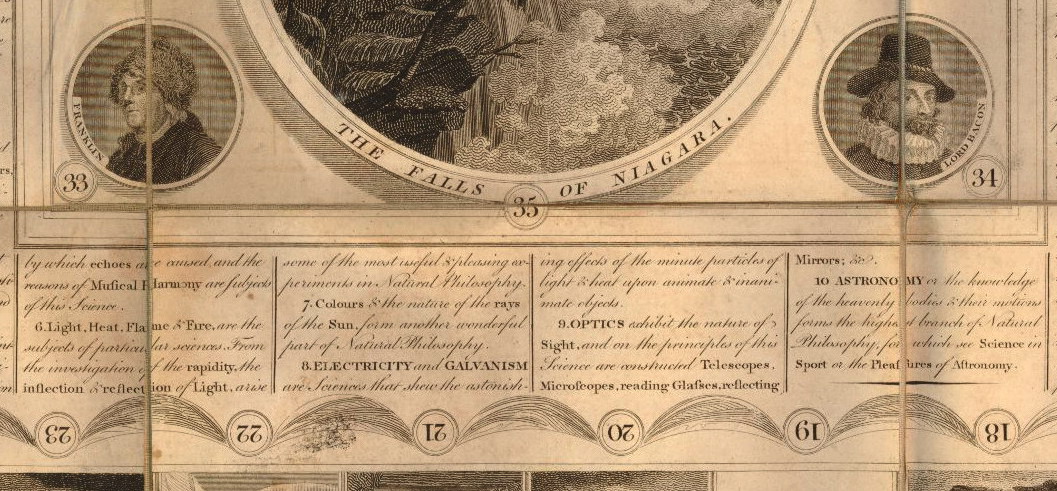 FRANKLIN
33
THE FALLS OF NIAGARA.
35
LORD BACON
34
by which echoes are caused, and the
reasons of Muſical Harmony are ſubjects
of this Science.
6. Light, Heat, Flame & Fire, are the
subjects of particular sciences. From
the investigation of the rapidity, the
inflection & reflection of Light, arise
some of the most useful & pleasing ex-
periments in Natural Philosophy.
7. Colours & the nature of the rays
of the Sun, form another wonderful
part of Natural Philosophy.
8. ELECTRICITY and GALVANISM
are Sciences that shew the astonish-
ing effects of the minute particles of
light & heat upon animate & inani-
mate objects.
9. OPTICS exhibit the nature of
Sight, and on the principles of this
Science are constructed Telescopes,
Microſcopes, reading Glaſses, reflecting
Mirrors; &c.
10 ASTRONOMY or the knowledge
of the heavenly bodies & their motions
forms the highest branch of Natural
Philosophy, for which see Science in
Sport or the Pleaſures of Aſtronomy.
23
22
21
20
19
18